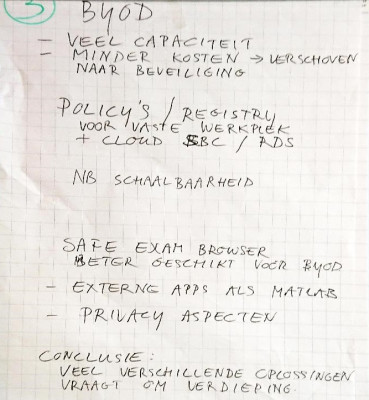 3
BYOD
- VEEL CAPACITEIT
- MINDER KOSTEN → VERSCHOVEN
NAAR BEVEILIGING
POLICY'S / REGISTRY
VOOR VASTE WERKPLEK
+ CLOUD SBC / RDS
NB SCHAALBAARHEID
SAFE EXAM BROWSER
BETER GESCHIKT VOOR BYOD
- EXTERNE APPS ALS MATLAB
- PRIVACY ASPECTEN
CONCLUSIE:
VEEL VERSCHILLENDE OPLOSSINGEN
VRAAGT OM VERDIEPING.